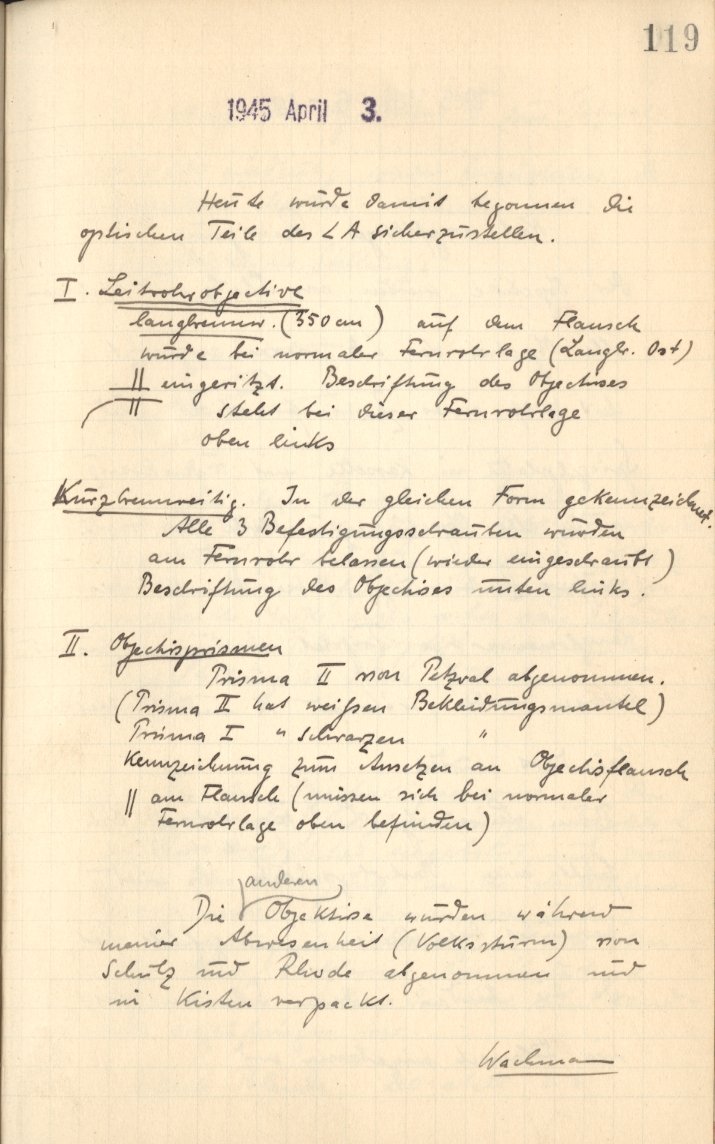 119
1945 April 3.
Heute wurde damit begonnen die
optischen Teile des LA sicherzustellen.
I. Leitrohrobjective
langbrennw. (350 cm) auf dem Flansch
wurde bei normaler Fernrohrlage (Langbr. Ost)
|| eingeritzt. Beschriftung des Objectives
|| steht bei dieser Fernrohrlage
oben links
Kurzbrennweitig. In der gleichen Form gekennzeichnet.
Alle 3 Befestigungsschrauben wurden
am Fernrohr belassen (wieder eingeschraubt)
Beschriftung des Objectives unten links.
II. Objectivprismen
Prisma II von Petzval abgenommen.
(Prisma II hat weißen Bekleidungsmantel)
Prisma I " schwarzen "
Kennzeichnung zum Ansetzen an Objectivflansch
|| am Flansch (müssen sich bei normaler
Fernrohrlage oben befinden)
anderen
Die Objektive wurden während
meiner Abwesenheit (Volkssturm) von
Schulz und Rhode abgenommen und
in Kisten verpackt.
Wachmann